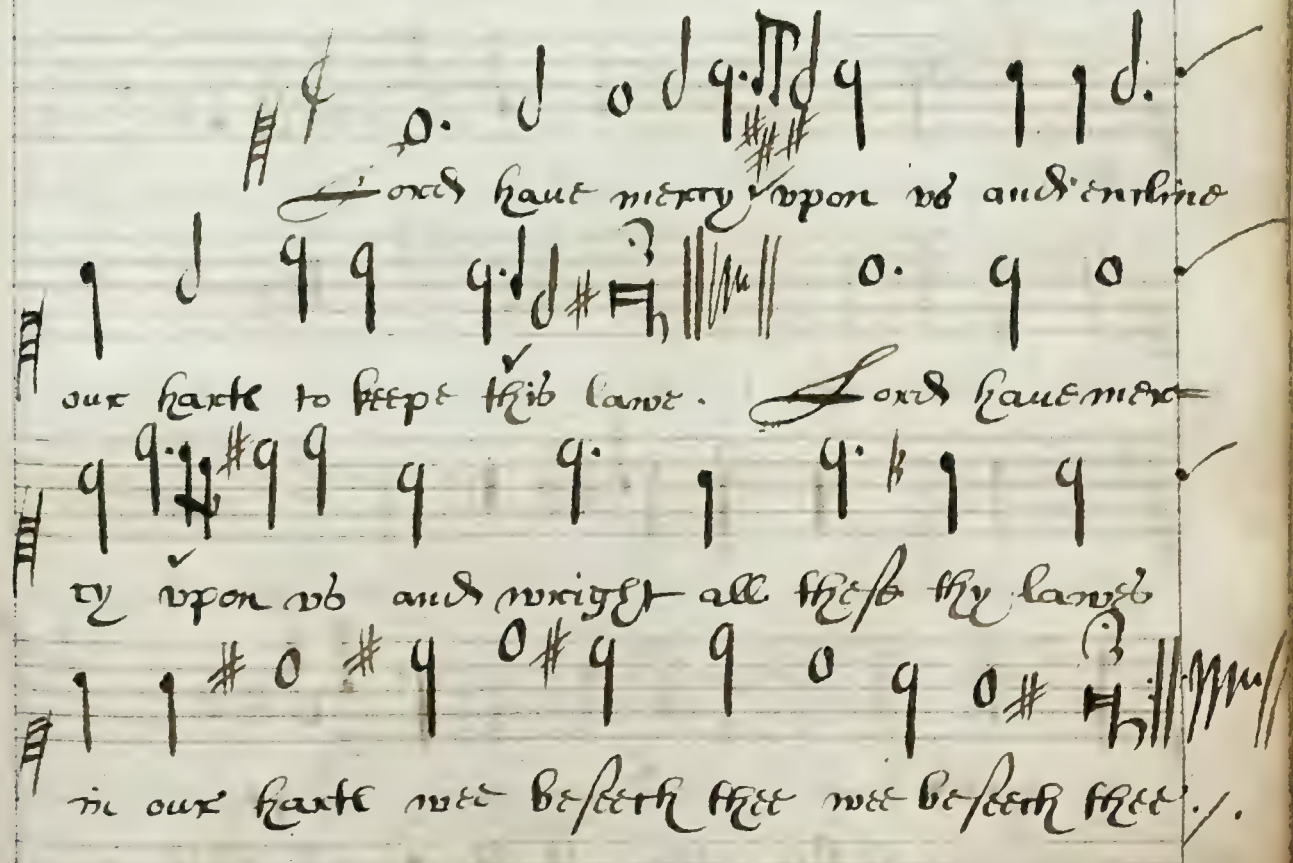 Lord haue mercy vpon vs and encline
our harts to keepe this lawe. Lord haue mer=
cy vpon vs and wright all these thy lawes
in our harts wee beseech thee wee beseech thee ./.